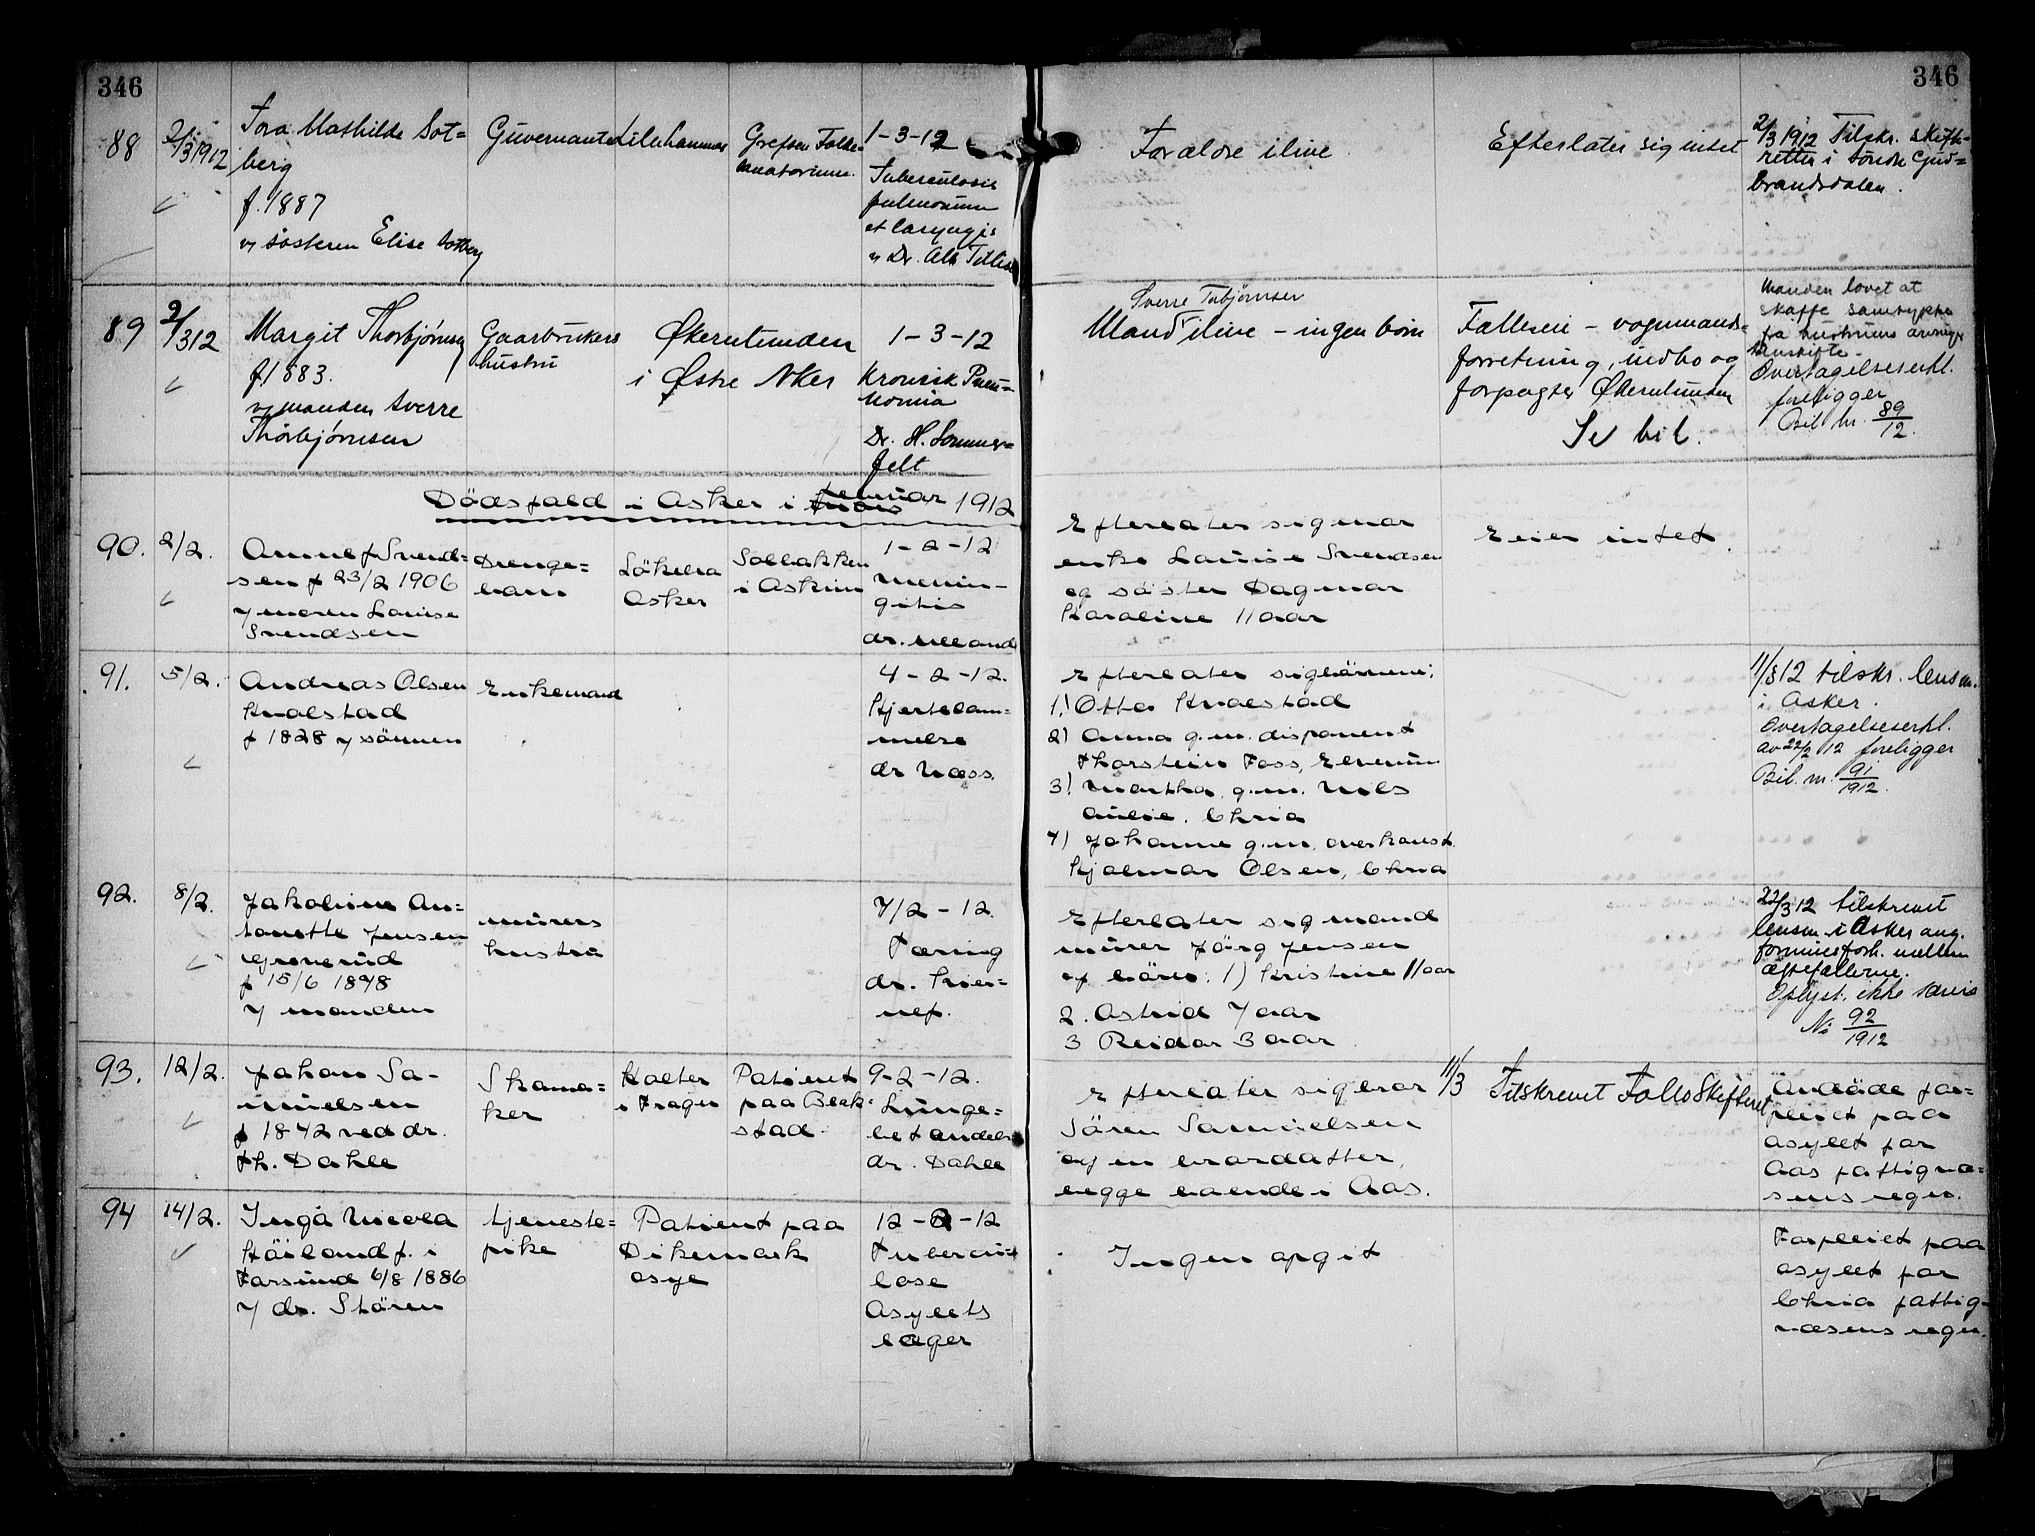 346
346
88
2/3 1912
Tora Mathilde Sot=
berg
f. 1887
v/ søsteren Elise Sotberg
Guvernante
Lillehammer
Grefsen Folke=
sanatorium.
1-3-12
Tuberculosis
pulmonum
et laryngis
Dr. Alb. Tillisch
Forældre ilive
Efterlater sig intet
2/3 1912 Tilskr. skifte-
retten i Søndre Gud=
brandsdalen.
89
2/3 12
Margit Thorbjørnsen
f. 1883.
v/ manden Sverre
Thorbjørnsen
Gaarbrukers
hustru
Økernlunden
i Østre Aker
1-3-12
Kronisk Pneu-
monia
Dr. H. Sommer=
felt
Sverre Torbjørnsen
Mand ilive - ingen børn
Fælleseie - vognmands-
forretning, indbo og
forpagter Økernlunden
Se bil.
Manden lovet at
skaffe samtykke
fra hustruens arvinger
Overtagelseserkl.
foreligger
Bil. nr. 89/12.
Dödsfald i Asker i februar 1912
90.
2/2.
Svend=
sen f 23/2 1906
v/ moren Louise
Svendsen
Drenge=
barn
Asker
Solbakken
i Askim
1-2-12
menin-
gitis
Efterlater sig mor
enke Louise Svendsen
og söster Dagmar
Karoline 11 aar
Eier intet.
91.
5/2.
Andreas Olsen
Hvalstad
f 1828 v/ sönnen
Enkemand
4-2-12.
Hjertelam=
melse
dr Næss.
Efterlater sig börnene:
1.) Otto Hvalstad
2) Anna g.m. disponent
Thorstein Foss, Elverum
3) Martha, g.m. Nils
Aulie. Chria
4) Johanne g.m. overkonst.
Hjalmar Olsen, Chria
11/3 12 tilskr. lensm.
i Asker.
Overtagelseserkl.
av 22/2 12 foreligger
Bil. nr. 91/1912.
92.
8/2.
Jakobine An=
tonette Jensen
Groverud
f 15/6 1878
v/ manden
murers
hustru
7/2-12.
Tæring
dr. Kier=
ulf.
Efterlater sig mand
murer Jörg Jensen
og börn: 1) Kristine 11 aar
2. Astrid 7 aar
3 Reidar 3 aar
22/3 12 tilskrevet
lensm. i Asker ang.
formuesforh. mellem
ægtefællerne.
Oplyst. ikke særeie
No 92/1912
93.
12/2.
Johan Sa-
muelsen
f 1842 ved dr.
Th. Dahle
Skoma=
ker
Holter
i Frogn
Patient
paa Blak=
stad
9-2-12.
Lunge=
betændelse
dr. Dahle
Efterlater sig bror
Sören Samuelsen
og en brordatter,
begge boende i Aas.
11/3 Tilskrevet Follo Skifteret
Avdöde for-
pleiet paa
asylet for
Aas fattigvæ=
sens regn.
94
14/2.
Inga Nicolea
Höiland f. i
Farsund 6/8 1886
v/ dr. Stören
tjeneste=
pike
Patient paa
Dikemark
asyl
12-2-12
Tuberku=
lose
Asylets
læger
Ingen opgit
Forpleiet paa
asylet for
Chria fattig-
væsens regn.